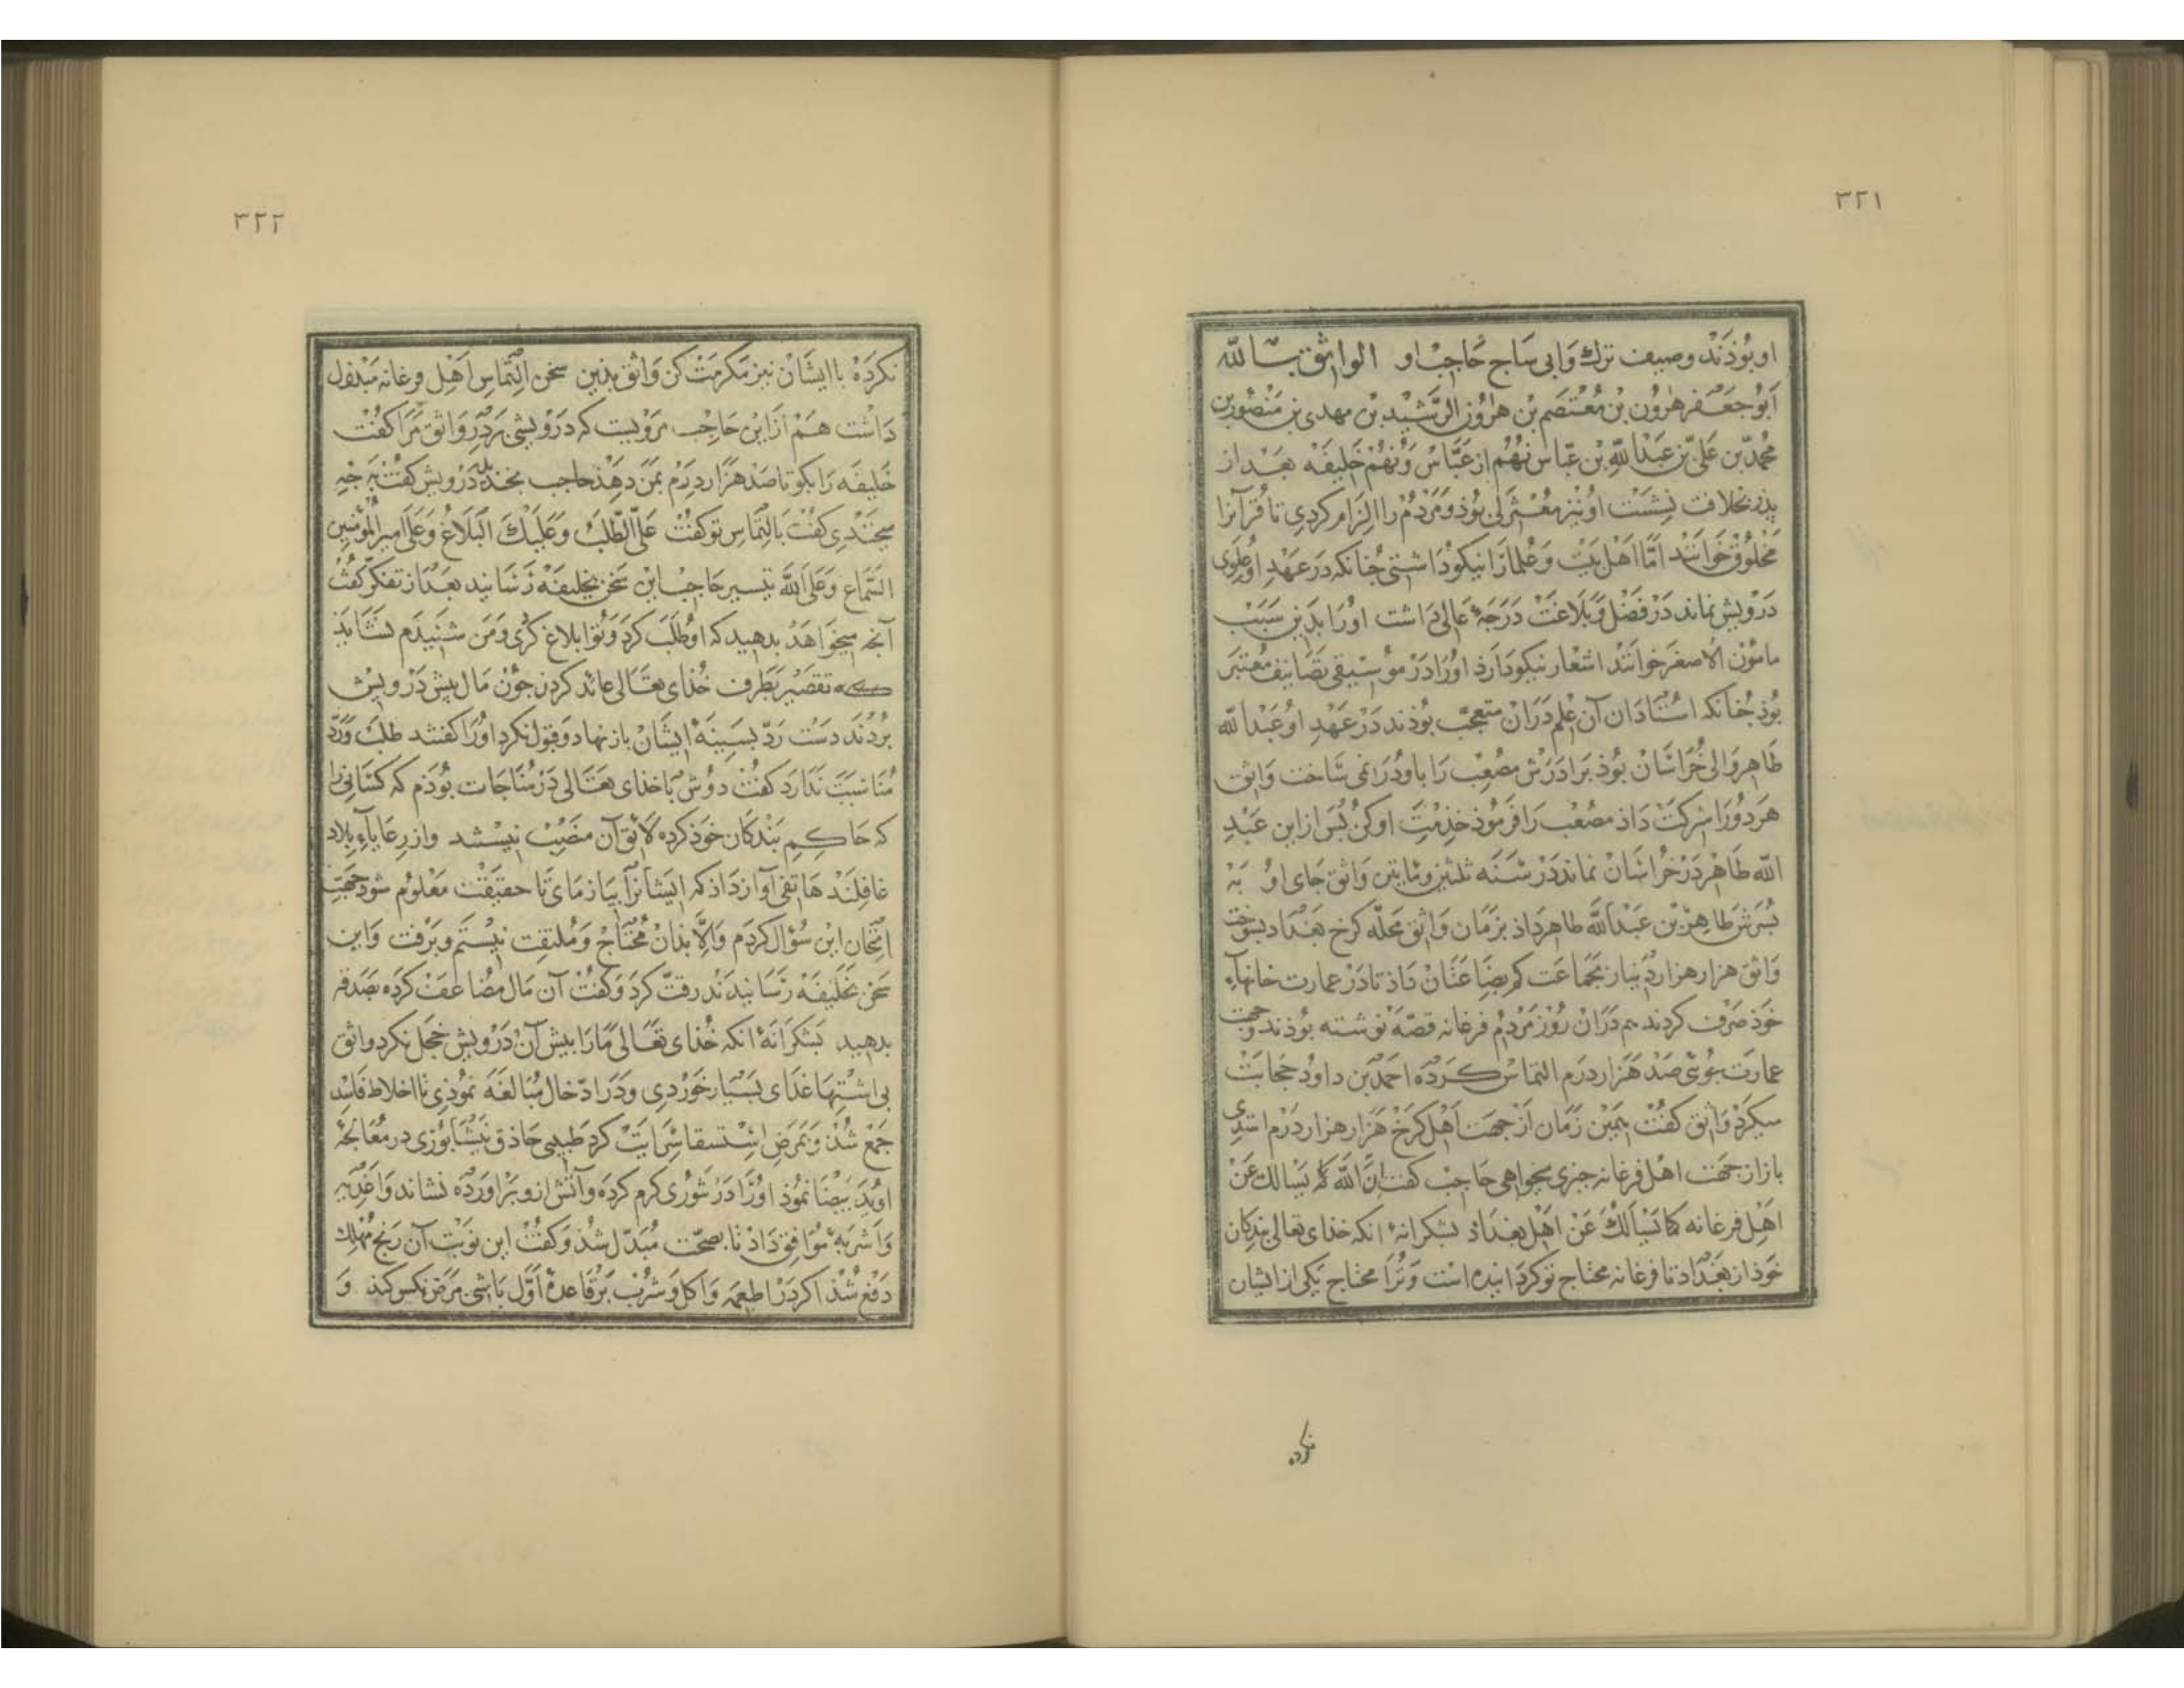 ۳۲۱
او بوذند وصیف ترك وابی ساج حاجب او الواثق بالله
ابو جعفر هرون بن معتصم بن هرون الرشید بن مهدی بن منصور بن
محمد بن علی بن عبد الله بن عباس نهم از عباس ونهم خلیفه بعد از
پذر بخلافت نشست او نیز معتزلی بوذ ومردم را الزام کردی تا قرآنرا
مخلوق خوانند اما اهل بیت وعلما را نیکو داشتی چنانکه در عهد او علوی
درویش نماند در فضل وبلاغت درجهٔ عالی داشت اورا بذین سبب
مامون الاصغر خوانند اشعار نیکو دارذ اورا در موسیقی تصانیف معتبر
بوذ چنانکه استادان آن علم دران متعجب بوذند در عهد او عبد الله
طاهر والی خراسان بوذ برادرش مصعب را با او در نمی ساخت واثق
هر دورا شرکت داذ مصعب را فرموذ خدمت او کن پس ازاین عبد
الله طاهر در خراسان نماند در سنه ثلثین ومایتین واثق جای او به
پسرش طاهر بن عبد الله طاهر داذ بزمان واثق محله کرخ بغداد بسوخت
واثق هزار هزار دینار بجماعت کم بضاعتان داذ تا در عمارت خانهاء
خوذ صرف کردند هم دران روز مردم فرغانه قصه نوشته بوذند وجهت
عمارت جوئی صد هزار درم التماس کرده احمد بن داود حجابت
میکرد واثق کفت همین زمان از جهت اهل کرخ هزار هزار درم استدی
باز از جهت اهل فرغانه چیزی میخواهی حاجب کفت ان الله کما یسالك عن
اهل فرغانه کما یسالك عن اهل بغداذ بشکرانهٔ انکه خذای تعالی بندکان
خوذ از بغداد تا فرغانه محتاج تو کردانیده است وترا محتاج یکی از ایشان
نکرده
۳۲۲
نکرده با ایشان نیز مکرمت کن واثق بذین سخن التماس اهل فرغانه مبذول
داشت هم ازاین حاجب مرویست که درویشی بر در واثق مرا کفت
خلیفه را بکو تا صد هزار درم بمن دهذ حاجب بخندید درویش کفت به چه
میخندی کفت بالتماس تو کفت علی الطلب وعلیك البلاغ وعلی امیر المؤمنین
السماع وعلی الله تیسیر حاجب این سخن بخلیفه رسانید بعد از تفکر کفت
آنچه میخواهد بدهید که او طلب کرد وتو ابلاغ کردی ومن شنیدم نشایذ
که تقصیر بطرف خذای تعالی عائد کردد چون مال پیش درویش
بردند دست رد بسینهٔ ایشان باز نهاد وقبول نکرد اورا کفتند طلب ورد
مناسبت ندارد کفت دوش با خذای تعالی در مناجات بوذم که کسانی را
که حاکم بندکان خوذ کرده لائق آن منصب نیستند واز رعایاء بلاد
غافلند هاتفی آواز داذ که ایشانرا بیازمای تا حقیقت معلوم شود جهت
امتحان این سؤال کردم والا بذان محتاج وملتفت نیستم وبرفت واین
سخن بخلیفه رسانیدند رقت کرد وکفت آن مال مضاعف کرده بصدقه
بدهید بشکرانهٔ انکه خذای تعالی مارا پیش آن درویش خجل نکرد واثق
بی اشتها غذای بسیار خوردی ودر ادخال مبالغه نموذی تا اخلاط فاسد
جمع شذ وبمرض استسقا سرایت کرد طبیبی حاذق نیشابوری در معالجهٔ
او ید بیضا نموذ اورا در تنوری کرم کرده وآتش ازو براورده نشاند واغذیه
واشربهٔ موافق داذ تا بصحت مبدل شذ وکفت این نوبت آن رنج مهلك
دفع شذ اکر در اطعمه واکل وشرب بر قاعدهٔ اول باشی مرض نکس کند و